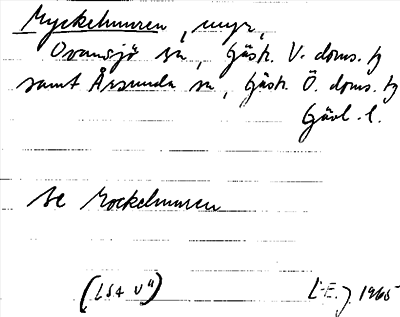 Myckelmuren, myr,
Ovansjö sn, Gästr. V. doms. tg
samt Årsunda sn, Gästr. Ö. doms. tg
Gävl. l.
Se Mockelmuren
(LSA V4)
1965